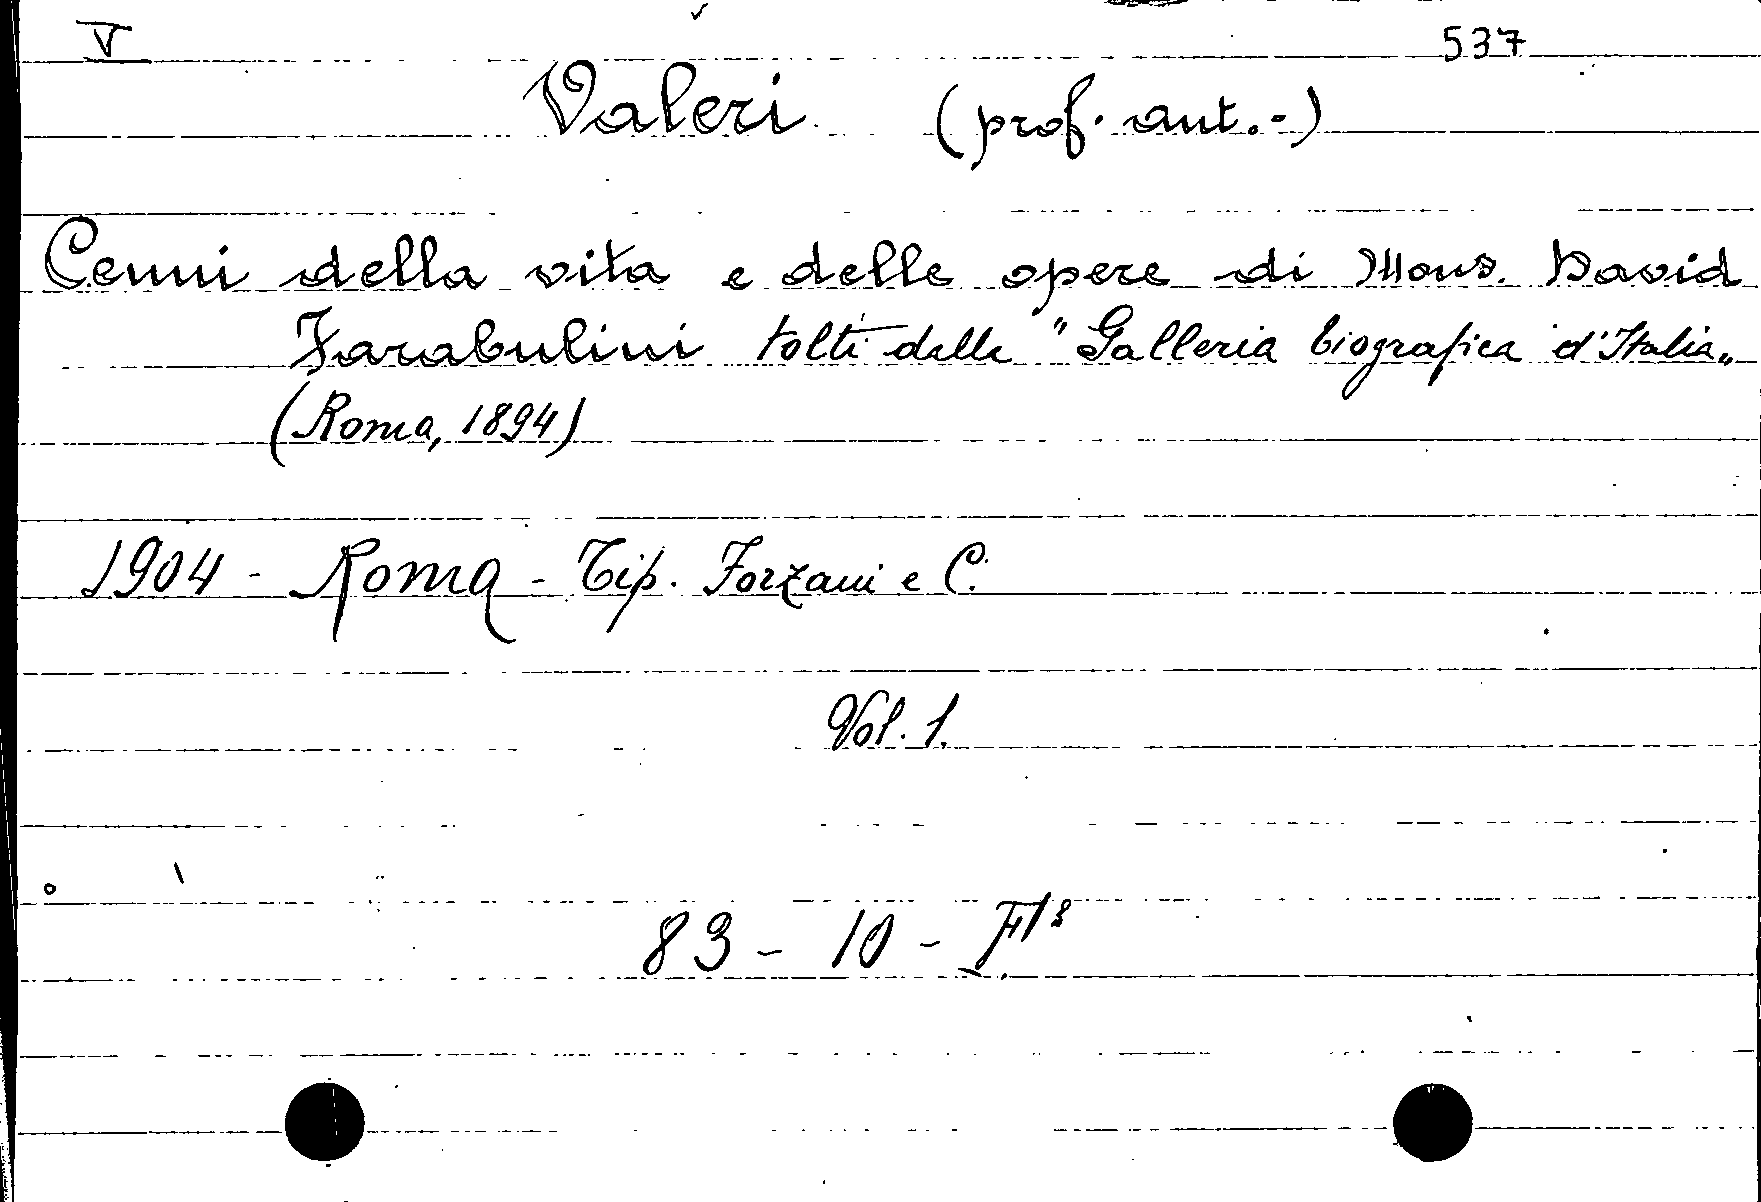 V 537
Valeri (prof. ant.-)
Cenni della vita e delle opere di Mons. David
Farabulini tolti dalla "Galleria biografica d'Italia„
(Roma, 1894)
1904 - Roma - Tip. Forzani e C.
Vol. 1.
83 - 10 -